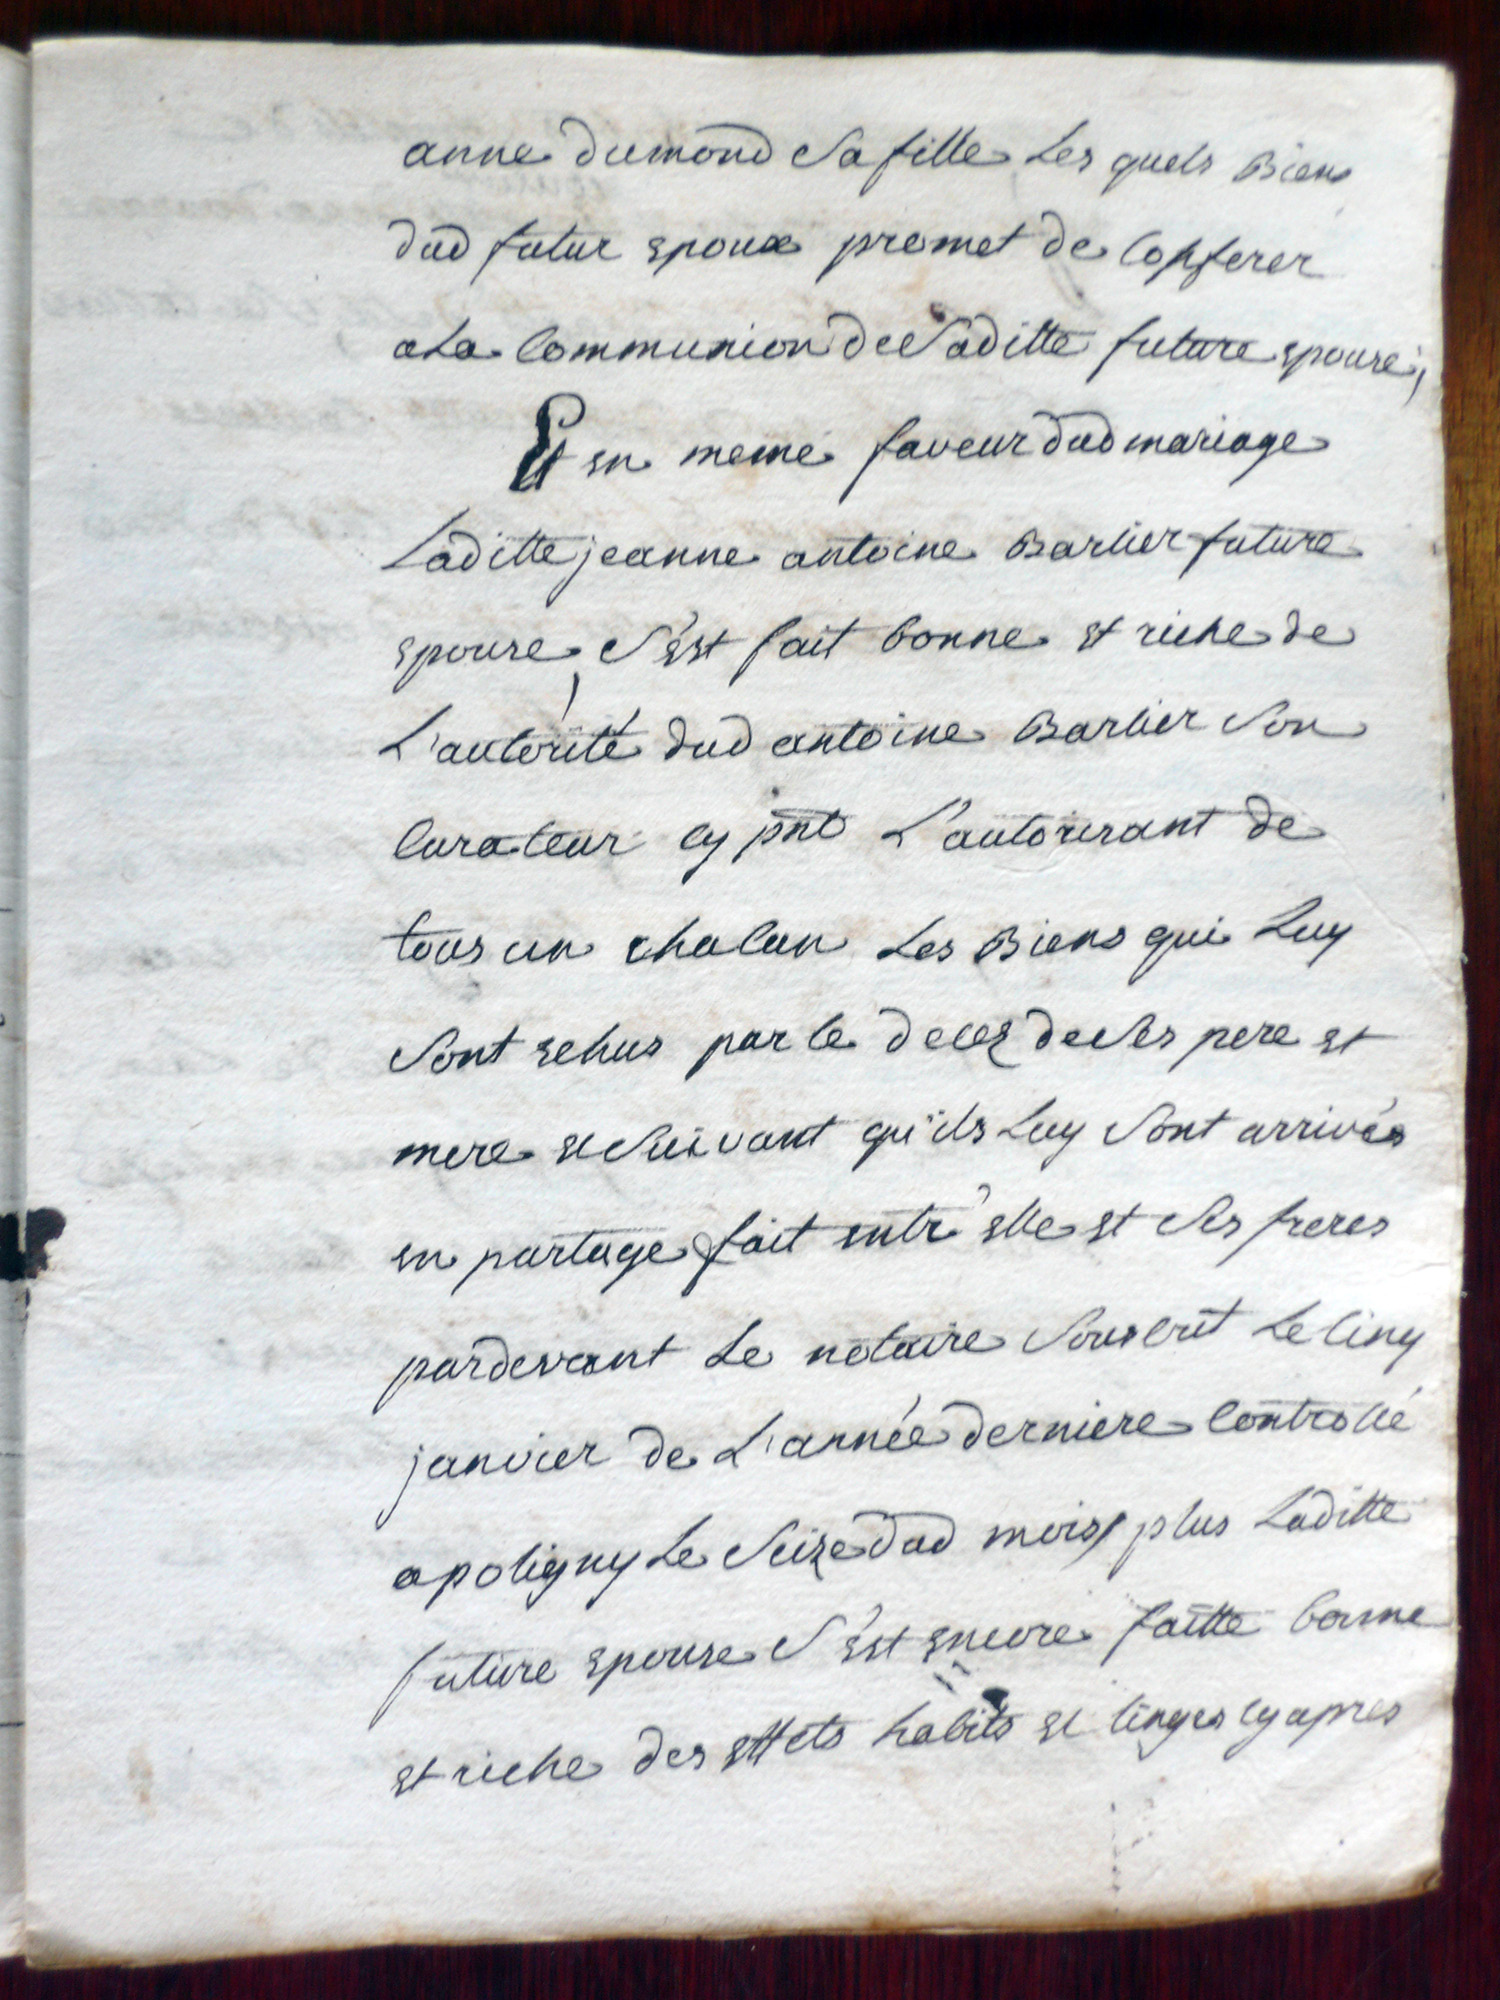 anne dumond sa fille les quels Biens
dud futur epoux promet de conferer
a la communion de Saditte future epouse,
Et en meme faveur dud mariage
Laditte jeanne antoine Barlier future
epouse, s'est fait bonne et riche de
L'autorité dud antoine Barlier son
curateur cy pnt L'autorisant de
tous un chacun les Biens qui Luy
sont echus par le decez de ses pere et
mere et suivant qu'ils Luy sont arrivés
en partage fait entr'elle et ses freres
pardevant Le notaire souscrit Le cinq
janvier de L'année derniere controllé
a poligny Le seize dud mois, plus Laditte
future epouse s'est encore faitte bonne
et riche des effets habits et linges cy apres